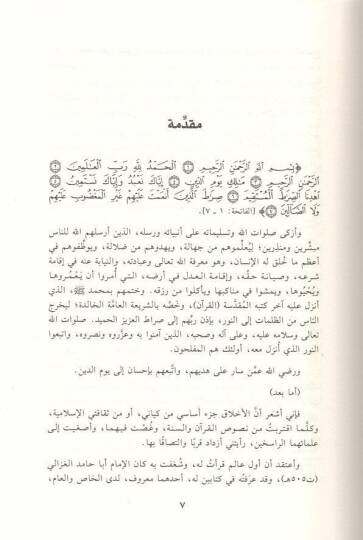 مقدِّمة
﴿بِسْمِ اللَّهِ الرَّحْمَٰنِ الرَّحِيمِ ۝١ الْحَمْدُ لِلَّهِ رَبِّ الْعَالَمِينَ ۝٢
الرَّحْمَٰنِ الرَّحِيمِ ۝٣ مَالِكِ يَوْمِ الدِّينِ ۝٤ إِيَّاكَ نَعْبُدُ وَإِيَّاكَ نَسْتَعِينُ ۝٥
اهْدِنَا الصِّرَاطَ الْمُسْتَقِيمَ ۝٦ صِرَاطَ الَّذِينَ أَنْعَمْتَ عَلَيْهِمْ غَيْرِ الْمَغْضُوبِ عَلَيْهِمْ
وَلَا الضَّالِّينَ ۝٧﴾ [الفاتحة: ١ - ٧].
وأزكى صلوات الله وتسليماته على أنبيائه ورسله، الذين أرسلهم الله للناس
مبشِّرين ومنذرين؛ ليُعلِّموهم من جهالة، ويهدوهم من ضلالة، ويوظِّفوهم في
أعظم ما خُلق له الإنسان، وهو معرفة الله تعالى وعبادته، والنيابة عنه في إقامة
شرعه، وصيانة حقِّه، وإقامة العدل في أرضه، التي أُمروا أن يَعْمُروها
ويُحْيُوها، ويمشوا في مناكبها ويأكلوا من رزقه. وختمهم بمحمد ﷺ، الذي
أنزل عليه آخر كتبه المُقدَّسة (القرآن)، وخصَّه بالشريعة العامَّة الخالدة؛ ليخرج
الناس من الظلمات إلى النور، بإذن ربِّهم إلى صراط العزيز الحميد. صلوات الله
تعالى وسلامه عليه، وعلى آله وصحبه، الذين آمنوا به وعزَّروه ونصروه، واتبعوا
النور الذي أُنزل معه، أولئك هم المفلحون.
ورضي الله عمَّن سار على هديهم، واتَّبعهم بإحسان إلى يوم الدين.
(أما بعد)
فإني أشعر أنَّ الأخلاق جزء أساسي من كياني، أو من ثقافتي الإسلامية،
وكلَّما اقتربتُ من نصوص القرآن والسنة، وغُصْت فيهما، وأصغيت إلى
علمائهما الراسخين، رأيتني أزداد قربًا والتصاقًا بها.
وأعتقد أن أول عالم قرأتُ له، وشُغفت به كان الإمام أبا حامد الغزالي
(ت٥٠٥هـ)، وقد عرَفتُه في كتابين له، أحدهما معروف، لدى الخاص والعام،
٧